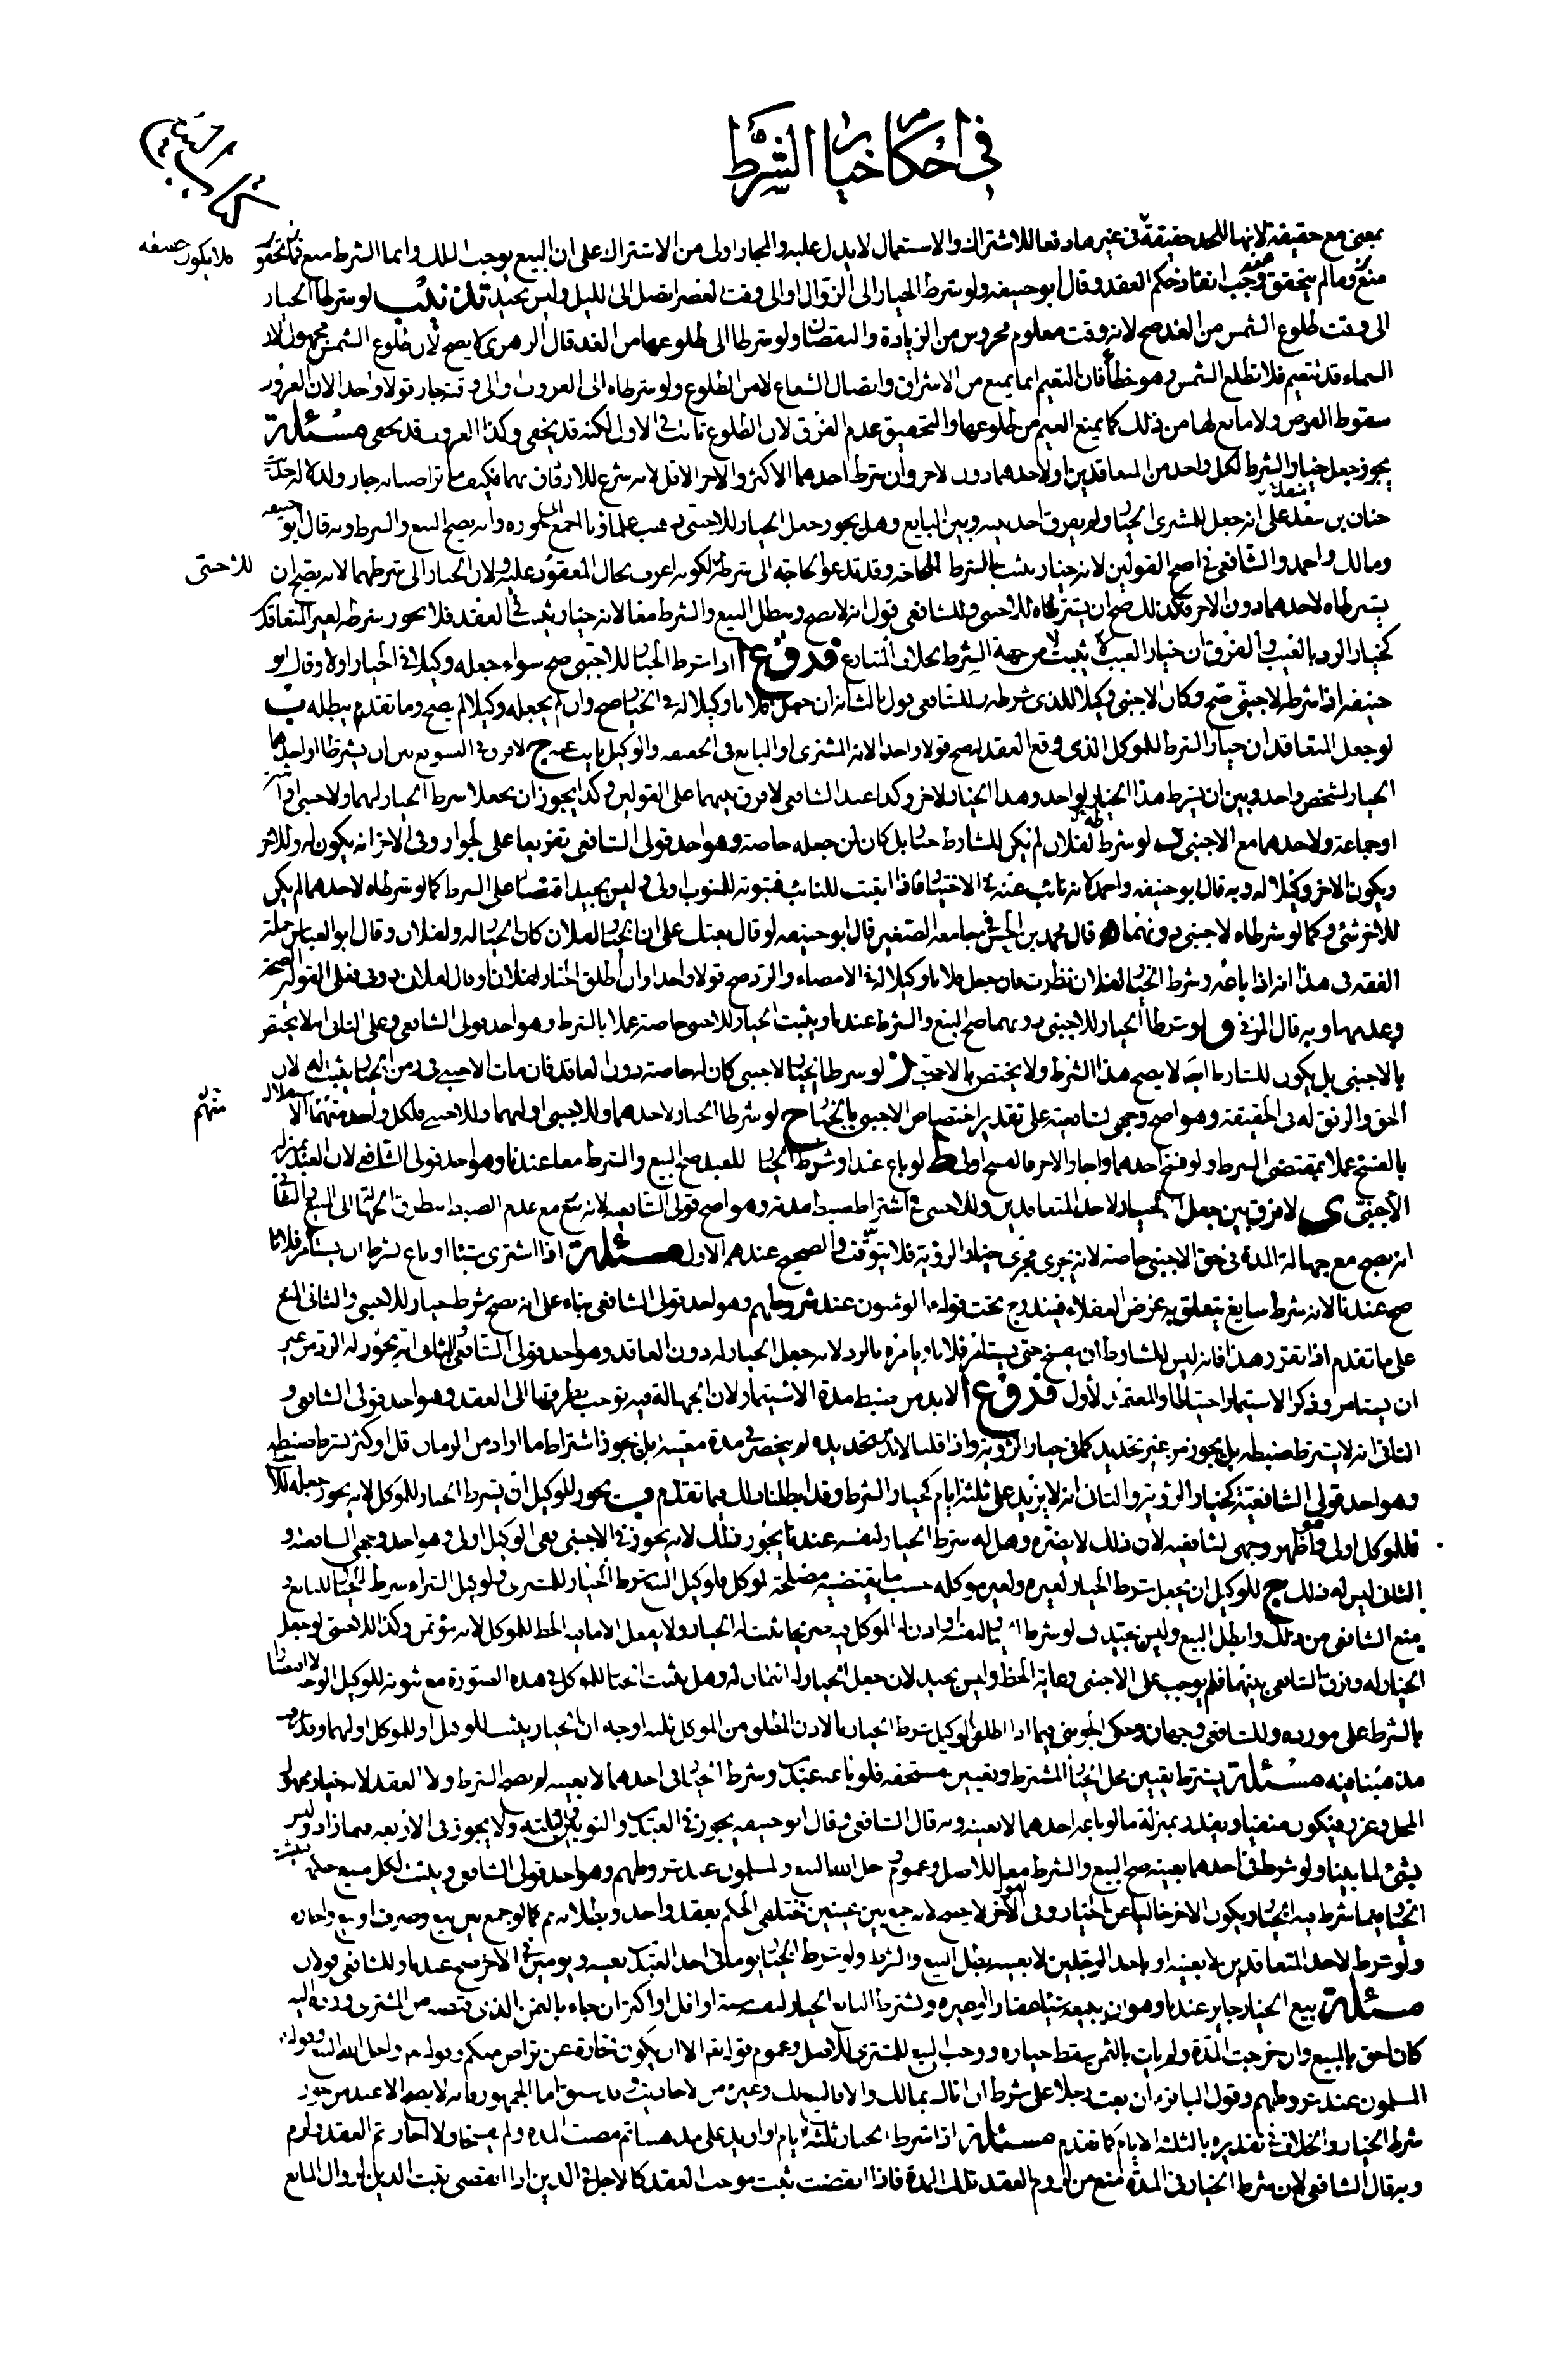 في احكام خيار الشرط
كتاب البيع
بمعنى مع حقيقة لانها للحد حقيقة في غيرها دفعا للاشتراك والاستعمال لا يدل عليه والمجاز اولى من الاشتراك على ان البيع يوجب الملك وانما الشرط منع
فلا يكون حقيقة
منع وما لم يتحقق وجب انفاذ حكم العقد وقال ابو حنيفه ولو شرط الخيار الى الزوال او الى وقت العصر اتصل الى الليل وليس بجيد تذنيب لو شرطا الخيار
الى وقت طلوع الشمس من الغد صح لانه وقت معلوم محروس من الزيادة والنقصان ولو شرطا الى طلوعها من الغد قال الزهرى لا يصح لان طلوع الشمس مجهول لان
السماء قد تتغيم فلا تطلع الشمس وهو خطأ فان التغيم انما يمنع من الاشراق واتصال الشعاع لا من الطلوع ولو شرطاه الى الغروب والى وقته جاز قولا واحدا لان الغروب
سقوط القرص ولا مانع لها من ذلك كما يمنع الغيم من طلوعها والتحقيق عدم الفرق لان الطلوع ثابت في الاول لكنه قد يخفى وكذا الغروب قد يخفى مسئلة
يجوز جعل خيار الشرط لكل واحد من المتعاقدين او لاحدهما دون الاخر وان شرط احدهما الاكثر والاخر الاقل لانه شرع للارفاق بهما فكيف ما تراضيا به جاز ولدلالة حديث
حنان بن منقذ على انه جعل للمشترى الخيار ولم يفرق احد بينه وبين البايع وهل يجوز جعل الخيار للاجنبى مذهب علمائنا اجمع الى جوازه وانه يصح البيع والشرط وبه قال ابو حنيفه
ومالك واحمد والشافعي في اصح القولين لانه خيار يثبت بالشرط للحاجة وقد تدعو الحاجة الى شرطه لكونه اعرف بحال المعقود عليه ولان الخيار الى شرطهما لانه يصح ان
للاجنبى
يشرطاه لاحدهما دون الاخر فكذلك صح ان يشترطاه للاجنبى وللشافعي قول انه لا يصح ويبطل البيع والشرط معا لانه خيار يثبت في العقد فلا يجوز شرطه لغير المتعاقد
كخيار الرد بالعيب والفرق ان خيار العيب لا يثبت من جهة الشرط بخلاف المتنازع فروع ا اذا شرط الخيار للاجنبى صح سواء جعله وكيلا في الخيار اولا وقال ابو
حنيفه اذا شرطه لاجنبى صح وكان الاجنبى وكيلا للذى شرطه وللشافعي قول بالثانى ان جعل فلانا وكيلا له في الخيار صح وان لم يجعله وكيلا لم يصح وما تقدم يبطله ب
لو جعل المتعاقدان خيار الشرط للموكل الذى وقع العقد له صح قولا واحدا لانه المشترى او البايع في الحقيقه والوكيل نايب عنه ج لا فرق في التسويغ بين ان يشترطا او احدهما
الخيار لشخص واحد وبين ان يشترط هذا الخيار لواحد وهذا الخيار لاخر وكذا عند الشافعي لا فرق بينهما على القولين وكذا يجوز ان يجعلا شرط الخيار لهما ولاجنبى
او جماعة ولاحدهما مع الاجنبى د لو شرط لفلان لم يكن للشارط خيار بل كان لمن جعله خاصة وهو احد قولى الشافعي تفريعا على الجواز وفي الاخر انه يكون له وللاخر
ويكون الاخر وكيلا له وبه قال ابو حنيفه واحمد لانه نائب عنه في الاختيار فاذا اثبت للنائب فثبوته للمنوب اولى وليس بجيد اقتصارا على الشرط كما لو شرطاه لاحدهما لم يكن
للاخر شئ وكما لو شرطاه لاجنبى دونهما ه قال محمد بن الحسن في جامعه الصغير قال ابو حنيفه لو قال بعتك على ان الخيار لفلان كان الخيار له ولفلان وقال ابو العباس جملة
الفقه في هذا انه اذا باعه وشرط الخيار لفلان نظرت فان جعل فلانا وكيلا له في الامضاء والرد صح قولا واحدا وان اطلق الخيار لفلان او قال لفلان دونى فعلى القولين الصحة
وعدمها وبه قال المزنى و لو شرطا الخيار للاجنبى دونهما صح البيع والشرط عندنا ويثبت الخيار للاجنبى خاصة عملا بالشرط وهو احد قولى الشافعي وعلى الثانى انه لا يختص
بالاجنبى بل يكون للشارط ايضا لا يصح هذا الشرط ولا يختص بالاجنبى ز لو شرطا الخيار لاجنبى كان له خاصة دون العاقد فان مات الاجنبى في زمن الخيار يثبت له لان
الحق والرفق له في الحقيقة وهو اصح وجهى الشافعية على تقدير اختصاص الاجنبى بالخيار ح لو شرطا الخيار لاحدهما وللاجنبى او لهما وللاجنبى فلكل واحد منهما الاستقلال
منهم
بالفسخ عملا بمقتضى الشرط ولو فسخ احدهما واجاز الاخر فالفسخ اولى ط لو باع عبدا وشرط الخيار للعبد صح البيع والشرط معا عندنا وهو احد قولى الشافعي لان العبد بمنزلة
الاجنبى ى لا فرق بين جعل الخيار لاحد المتعاقدين وللاجنبى في اشتراط ضبط مدته وهو اصح قولى الشافعيه لانه مع عدم الضبط تطرق الجهالة الى البيع والثانى
انه يصح مع جهالة المدة في حق الاجنبى خاصة لانه يجرى مجرى خيار الرؤية فلا يتوقت والصحيح عندهم الاول مسئلة اذا اشترى شيئا او باع بشرط ان يستأمر فلانا
صح عندنا لانه شرط سايغ يتعلق به غرض العقلاء فيندرج تحت قوله المؤمنون عند شروطهم وهو احد قولى الشافعي بناء على انه يصح شرط خيار للاجنبى والثانى المنع
على ما تقدم اذا تقرر هذا فانه ليس للشارط ان يفسخ حتى يستأمر فلانا ويأمره بالرد لانه جعل الخيار له دون العاقد وهو احد قولى الشافعي والثانى انه يجوز له الرد من غير
ان يستامر وذكر الاستيمار احتياطا والمعتمد الاول فروع ا لا بد من ضبط مدة الاستيمار لان الجهالة فيه توجب تطرقها الى العقد وهو احد قولى الشافعي و
الثانى انه لا يشترط ضبطه بل يجوز من غير تحديد كما في خيار الرؤية واذا قلنا لا بد من تحديده لم ينحصر في مدة معينة بل يجوز اشتراط ما اراد من الزمان قل او كثر بشرط ضبطه
وهو احد قولى الشافعيّة كخيار الرؤية والثانى انه لا يزيد على ثلثة ايام كخيار الشرط وقد ابطلنا ذلك فيما تقدم ب يجوز للوكيل ان يشرط الخيار للموكل لانه يجوز جعله للاجنبى
فللموكل اولى وهو اظهر وجهى الشافعيه لان ذلك لا يضره وهل له شرط الخيار لنفسه عندنا يجوز ذلك لانه يجوز في الاجنبى ففى الوكيل اولى وهو احد وجهى الشافعية و
الثانى ليس له ذلك ج للوكيل ان يجعل شرط الخيار لغيره ولغير موكله حسب ما يقتضيه مصلحة الموكل فلوكيل البيع شرط الخيار للمشترى ولوكيل الشراء شرط الخيار للبايع و
منع الشافعي من ذلك وابطل البيع وليس بجيد د لو شرط الخيار لنفسه او اذن له الموكل فيه صريحا يثبت له الخيار ولا يفعل الا ما فيه الحظ للموكل لانه مؤتمن وكذا الاجنبى لو جعل
الخيار له وفرق الشافعي بينهما فلم يوجب على الاجنبى رعاية الحظ وليس بجيد لان جعل الخيار له ائتمان له وهل يثبت الخيار للموكل في هذه الصورة مع ثبوته للوكيل الوجه لا اقتصارا
بالشرط على مورده وللشافعي وجهان وحكى الجوينى فيما اذا اطلق الوكيل شرط الخيار بالاذن المطلق من الموكل ثلثه اوجه ان الخيار يثبت للوكيل او للموكل او لهما وقد
مذهبنا فيه مسئلة يشترط تعيين محل الخيار المشترط وتعيين مستحقه فلو باعه عبدين وشرط الخيار في احدهما لا بعينه لم يصح الشرط ولا العقد لانه خيار مجهول
المحل وغرر فيكون منفيا ويعقد بمنزلة ما لو باعه احدهما لا بعينه وبه قال الشافعي وقال ابو حنيفه يجوز في العبدين والثوبين والثلثه ولا يجوز في الاربعه فما زاد وليس
بشئ لما بينا ولو شرط في احدهما بعينه صح البيع والشرط معا للاصل وعموم احل الله البيع والمسلمون عند شروطهم وهو احد قولى الشافعي ويثبت لكل مبيع حكمه فيثبت
الخيار فيما شرط فيه الخيار ويكون الاخر خاليا عن الخيار وفي الاخر لا يصح لانه جمع بين عينين مختلفى الحكم بعقد واحد وبطلانه ثم كما لو جمع بين بيع وصرف او بيع واجارة
ولو شرط لاحد المتعاقدين لا بعينه او لاحد الرجلين لا بعينه بطل البيع والشرط ولو شرط الخيار يوما في احد العبدين بعينه ويومين في الاخر صح عندنا وللشافعي قولان
مسئلة بيع الخيار جايز عندنا وهو ان يبيعه شيئا عقارا او غيره ويشترط البايع الخيار لنفسه سنة او اقل او اكثر ان جاء بالثمن الذى قبضه من المشترى ورده اليه
كان احق بالمبيع وان خرجت المدة ولم يات بالثمن سقط خياره ووجب البيع للمشترى للاصل وعموم قوله تعالى الا ان يكون تجارة عن تراض منكم وقوله تعالى واحل الله البيع وقوله
المسلمون عند شروطهم وقول الباقر ان بعت رجلا على شرط ان اتاك بمالك والا فالبيع لك وغيره من الاحاديث وقد سبق اما الجمهور فانه لا يصح الا عند من جوز
شرط الخيار والخلاف في تقديره بالثلثة الايام كما تقدم مسئلة اذا شرط الخيار ثلثة ايام او ازيد على مذهبنا ثم مضت المدة ولم يفسخا ولا اجاز تم العقد ولزم
وبه قال الشافعي لان شرط الخيار في المدة منع من لزوم العقد تلك المدة فاذا انقضت ثبت موجب العقد كالاجل في الدين اذا انقضى يثبت الدين لزوال المانع